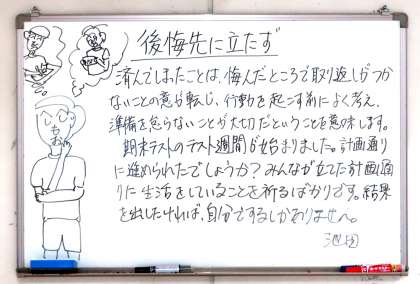 後悔先に立たず
済んでしまったことは、悔んだところで取り返しがつか
ないことの意が転じ、行動を起こす前によく考え、
準備を怠らないことが大切だということを意味します。
期末テストのテスト週間が始まりました。計画通り
に進められたでしょうか？みんなが立てた計画通
りに生活をしていることを祈るばかりです。結果
を出したければ、自分でするしかありません。